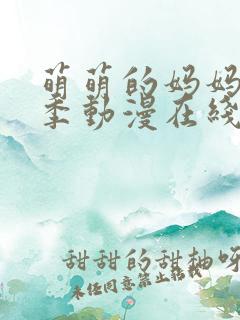 萌萌的妈妈
季动漫在线
甜甜的甜柚呀
未经同意禁止转载